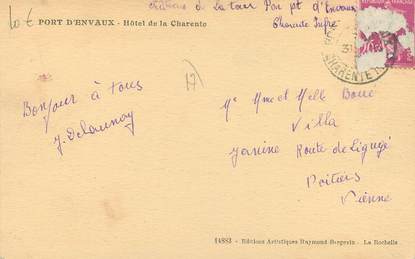 10 €
château de la tour Pon pt d'Envaux
PORT D'ENVAUX - Hôtel de la Charente
Charente Infre
REPUBLIQUE FRANCAISE
CHARENTE
17
Bonjour à tous
J. Delaunay
Mr Mme et Melle Boué
Villa
Janine Route de Ligugé
Poitiers
Vienne
14883 - Editions Artistiques Raymond Bergevin - La Rochelle